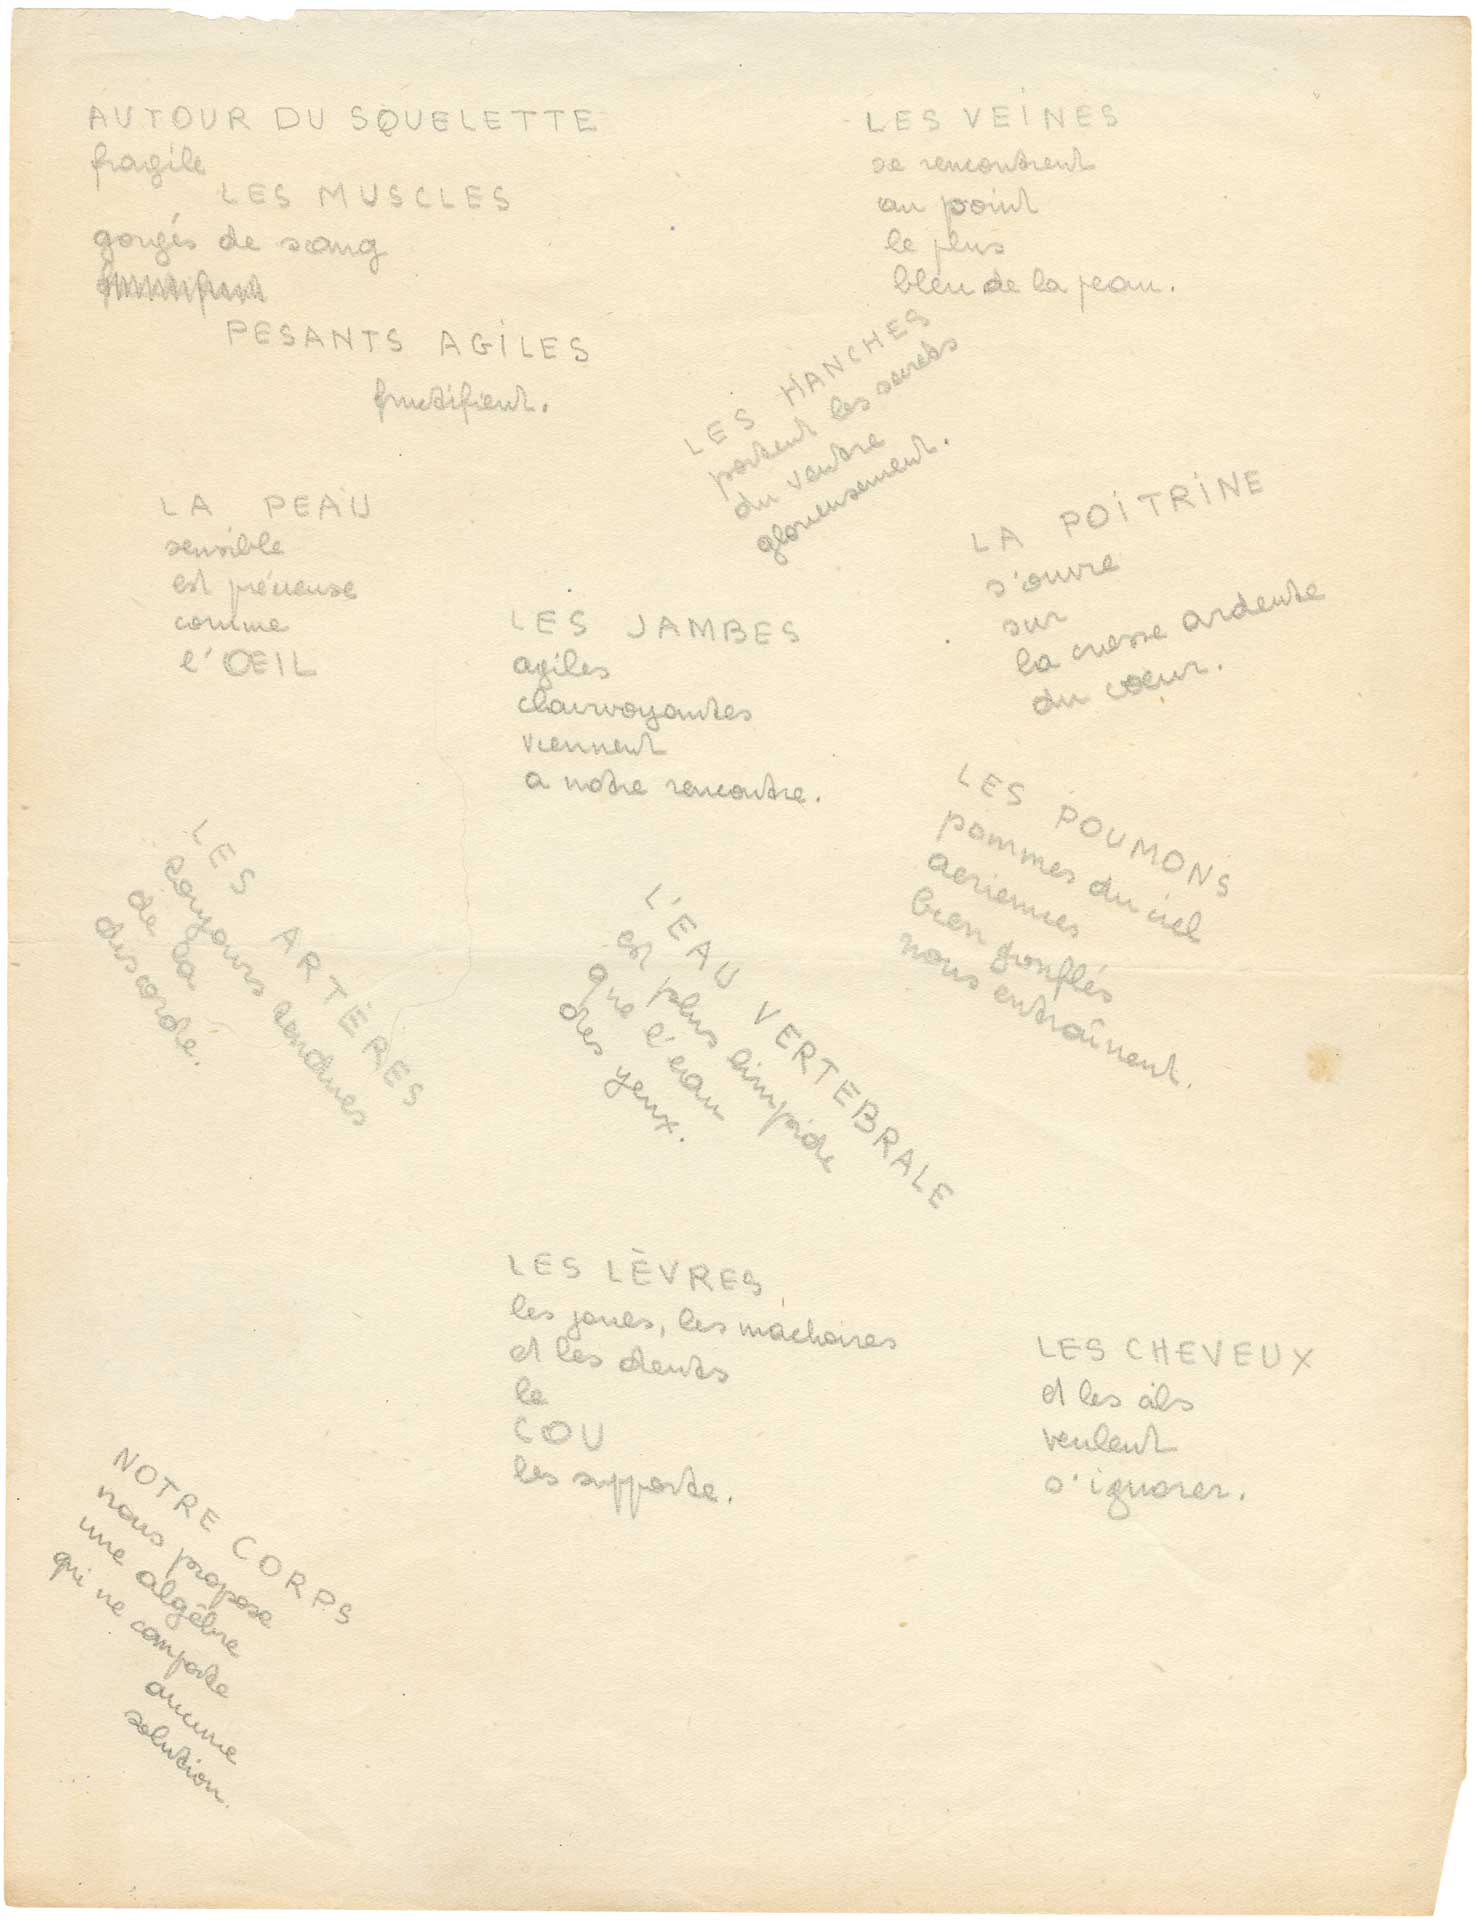 AUTOUR DU SQUELETTE
fragile
LES MUSCLES
gorgés de sang
PESANTS AGILES
fructifient.
LES VEINES
se rencontrent
au point
le plus
bleu de la peau.
LES HANCHES
portent les secrets
du ventre
glorieusement.
LA PEAU
sensible
est précieuse
comme
l'OEIL
LA POITRINE
s'ouvre
sur
la cuesse ardente
du coeur.
LES JAMBES
agiles
clairvoyantes
viennent
a notre rencontre.
LES POUMONS
pommes du ciel
aeriennes
bien gonflés
nous entraînent.
LES ARTÈRES
rayours tendues
de la
discorde.
L'EAU VERTEBRALE
est plus limpide
que l'eau
des yeux.
LES LÈVRES
les joues, les machoires
et les dents
le
COU
les supporte.
LES CHEVEUX
et les cils
veulent
s'ignorer.
NOTRE CORPS
nous propose
une algèbre
qui ne comporte
aucune
solution.